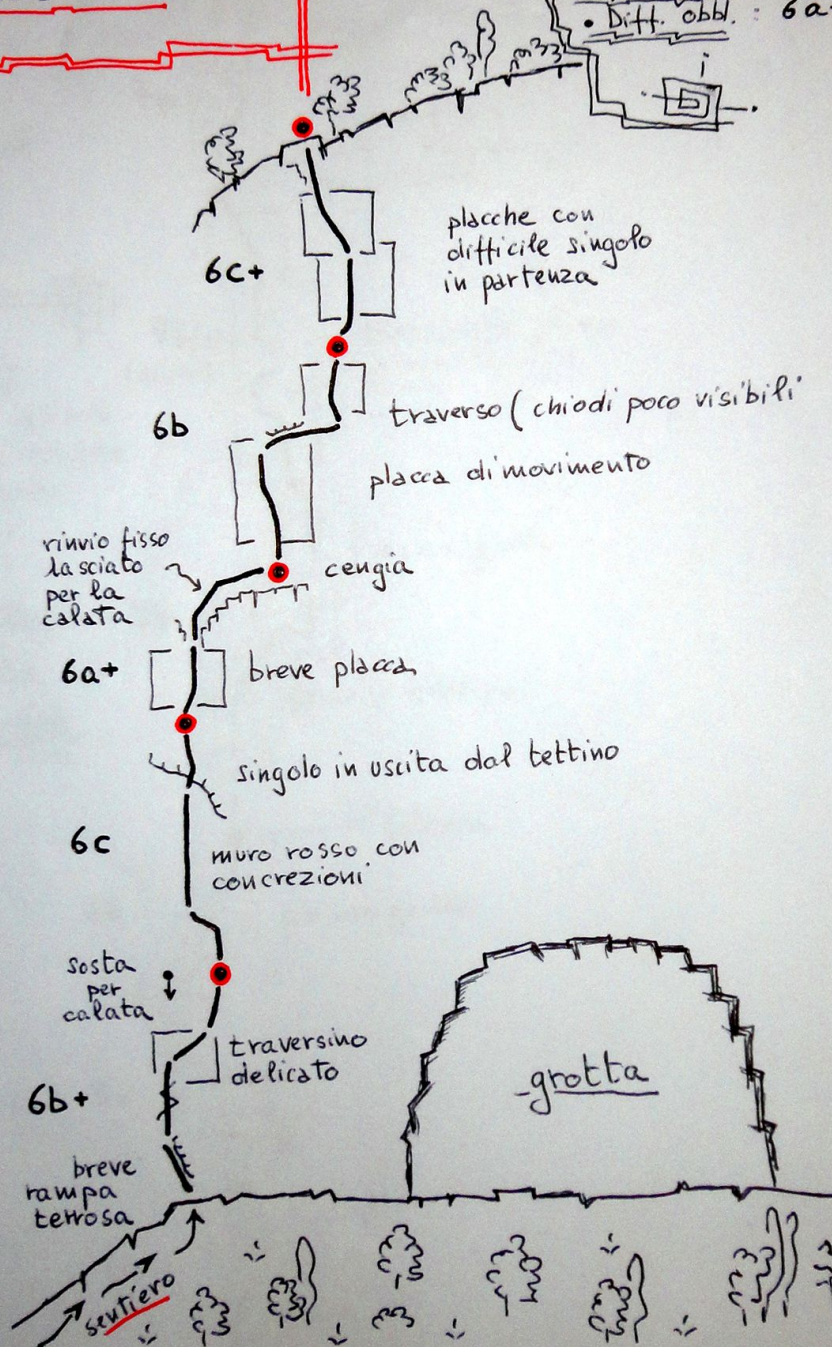 • Diff. obbl. : 6a
placche con
difficile singolo
in partenza
6c+
traverso ( chiodi poco visibili
6b
placca di movimento
rinvio fisso
lasciato
per la
calata
cengia
6a+
breve placca
singolo in uscita dal tettino
6c
muro rosso con
concrezioni
sosta
per
calata
traversino
delicato
grotta
6b+
breve
rampa
terrosa
sentiero